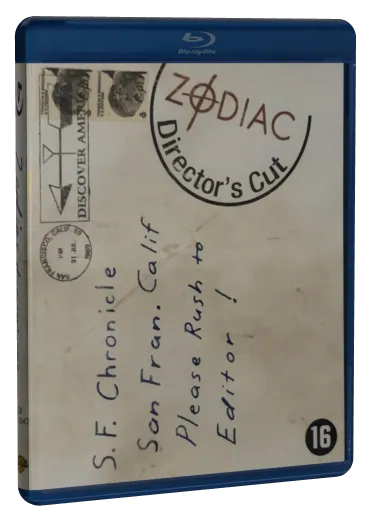 Blu-ray Disc
ZODIAC
Director's Cut
DISCOVER AMERICA
SAN FRANCISCO, CALIF.
PM
S.F. Chronicle
San Fran. Calif
Please Rush to
Editor!
16